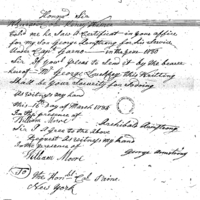 Honourd Sir
told me he saw A Certificat in your office
for my Son George Armstrong for his Service
Under Capt in the year 1780
Sir If youl please to Send it by the bearer
hereof Mr George this Writting
Shall be your Security for Sodoing
As witness my hand
this 16 day of March 1785
In the presence of
William Move Archibald Armstrong
Sir I Agree to the above
Request As witness my hand
In the presence of
William Move George Armstrong
To The Honble Col.
New York